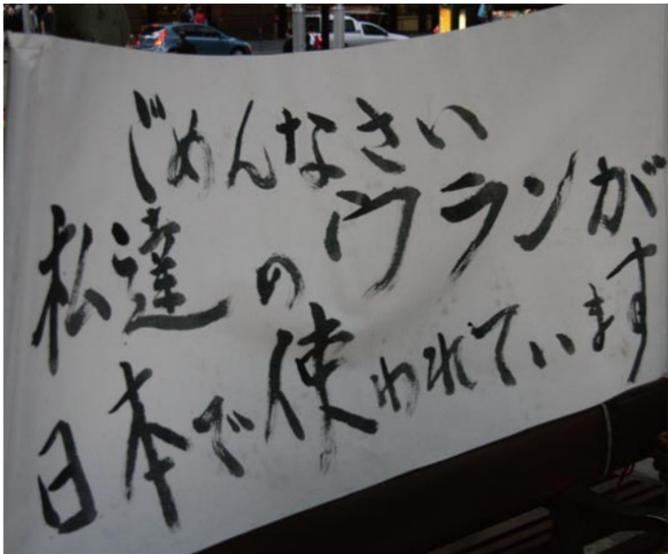 じめんなさい
私達のウランが
日本で使われています